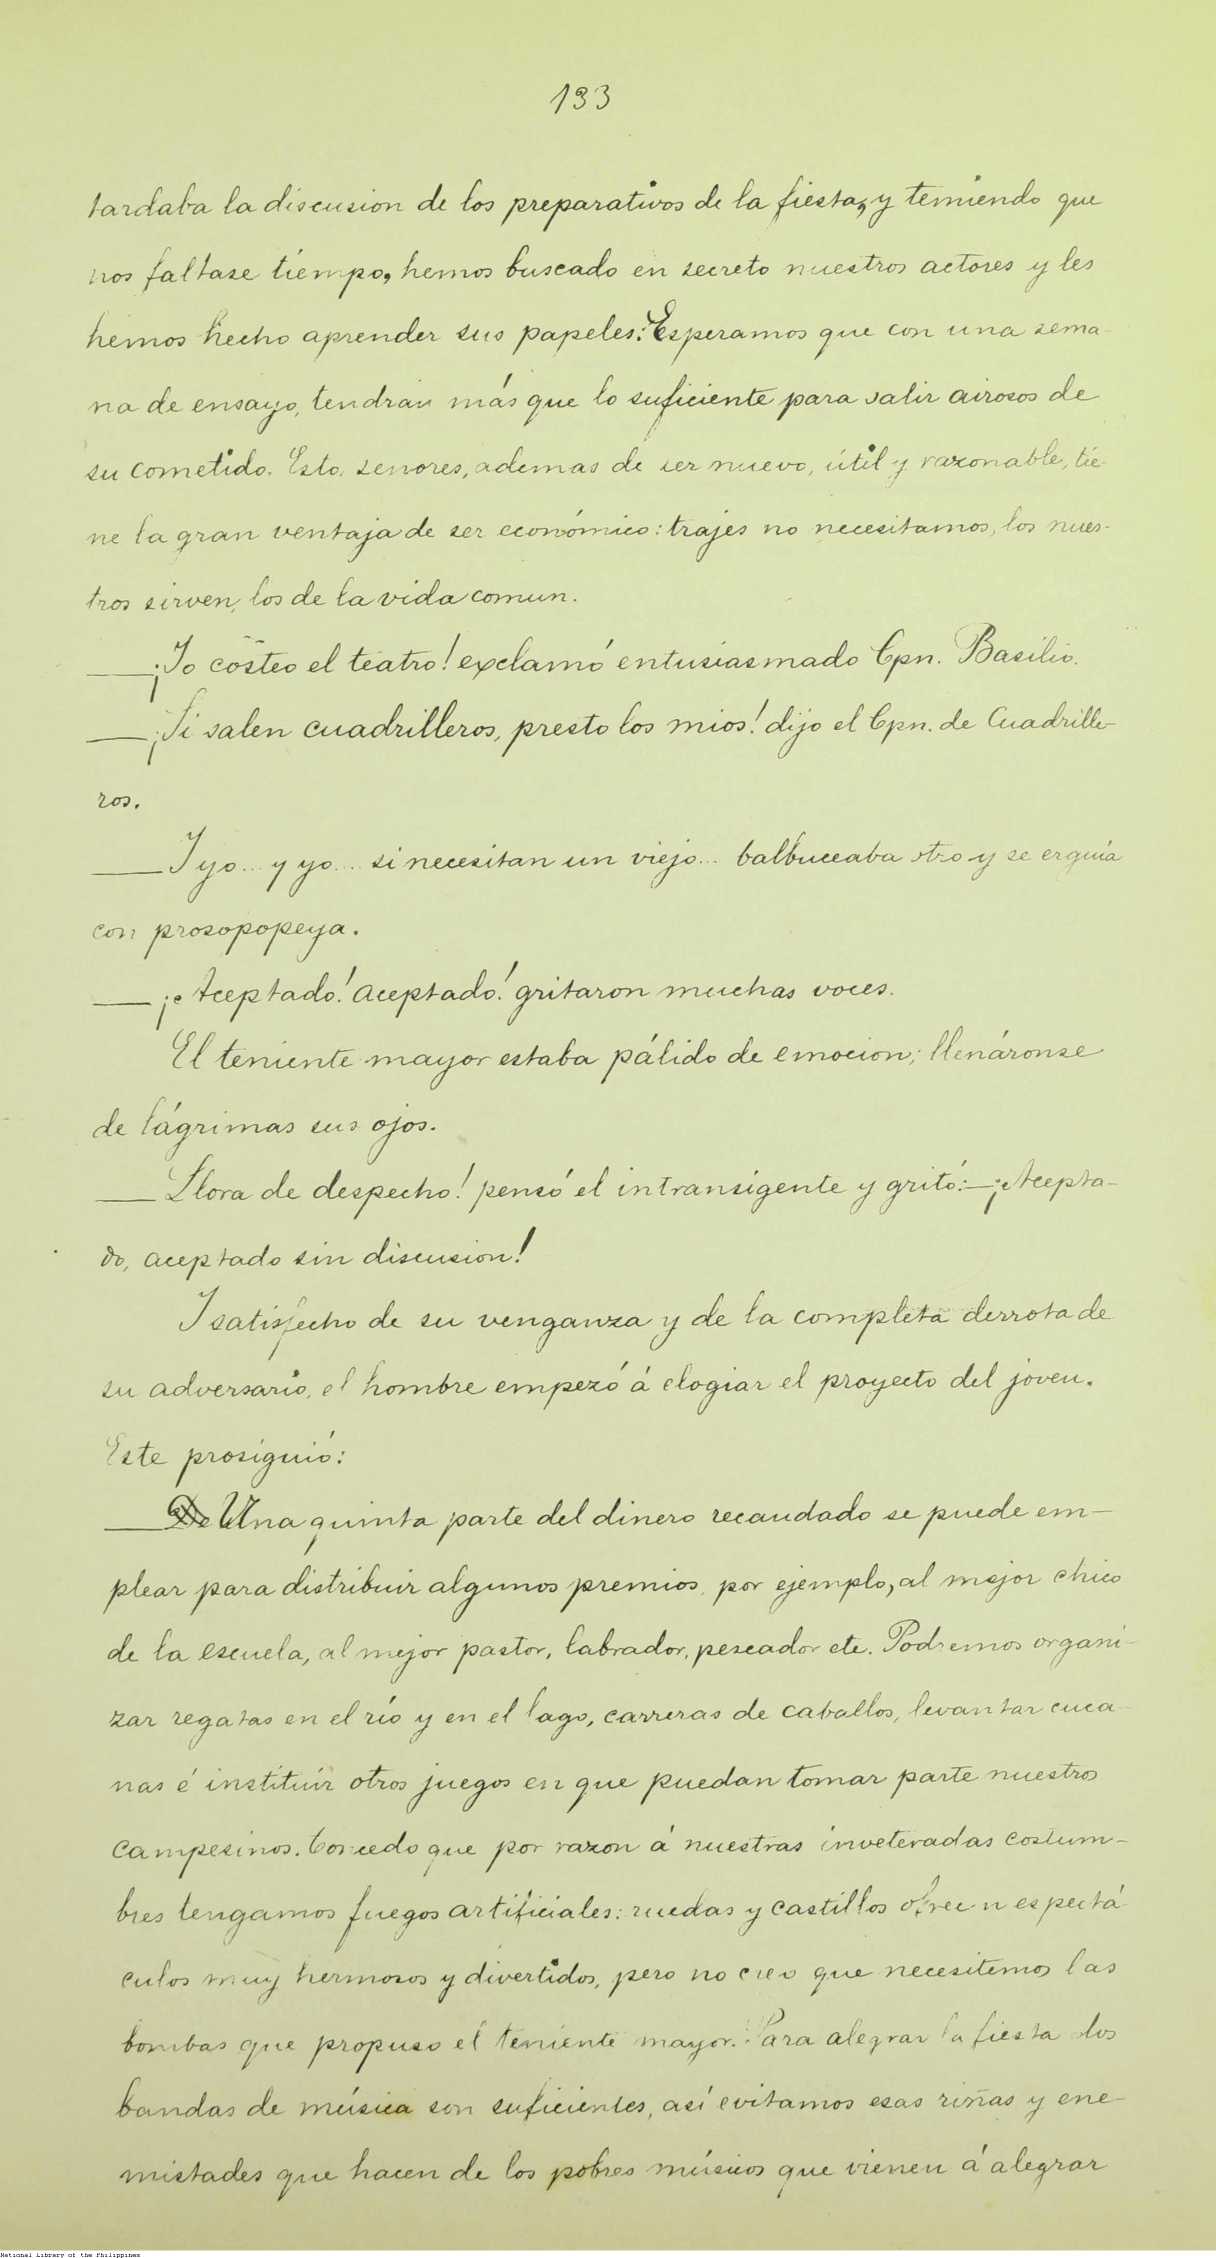 133
tardaba la discusion de los preparativos de la fiesta, y temiendo que
nos faltase tiempo, hemos buscado en secreto nuestros actores y les
hemos hecho aprender sus papeles. Esperamos que con una sema-
na de ensayo, tendran más que lo suficiente para salir airosos de
su cometido. Esto, senores, ademas de ser nuevo, útil y razonable, tie-
ne la gran ventaja de ser económico: trajes no necesitamos, los nues-
tros sirven, los de la vida comun.
—¡Yo costeo el teatro! exclamó entusiasmado Cpn. Basilio.
—¡Si salen cuadrilleros, presto los mios! dijo el Cpn. de Cuadrille-
ros.
—Y yo... y yo... si necesitan un viejo... balbuceaba otro y se erguia
con prosopopeya.
—¡Aceptado! aceptado! gritaron muchas voces.
El teniente mayor estaba pálido de emocion; llenáronse
de lágrimas sus ojos.
—Llora de despecho! pensó el intransigente y gritó:—¡Acepta-
do, aceptado sin discusion!
Y satisfecho de su venganza y de la completa derrota de
su adversario, el hombre empezó á elogiar el proyecto del joven.
Este prosiguió:
—Una quinta parte del dinero recaudado se puede em-
plear para distribuir algunos premios, por ejemplo, al mejor chico
de la escuela, al mejor pastor, labrador, pescador etc. Podremos organi-
zar regatas en el río y en el lago, carreras de caballos, levantar cuca-
nas é instituir otros juegos en que puedan tomar parte nuestros
campesinos. Concedo que por razon á nuestras inveteradas costum-
bres tengamos fuegos artificiales: ruedas y castillos ofrecen espectá-
culos muy hermosos y divertidos, pero no creo que necesitemos las
bombas que propuso el teniente mayor. Para alegrar la fiesta dos
bandas de música son suficientes, así evitamos esas riñas y ene-
mistades que hacen de los pobres músicos que vienen á alegrar
National Library of the Philippines